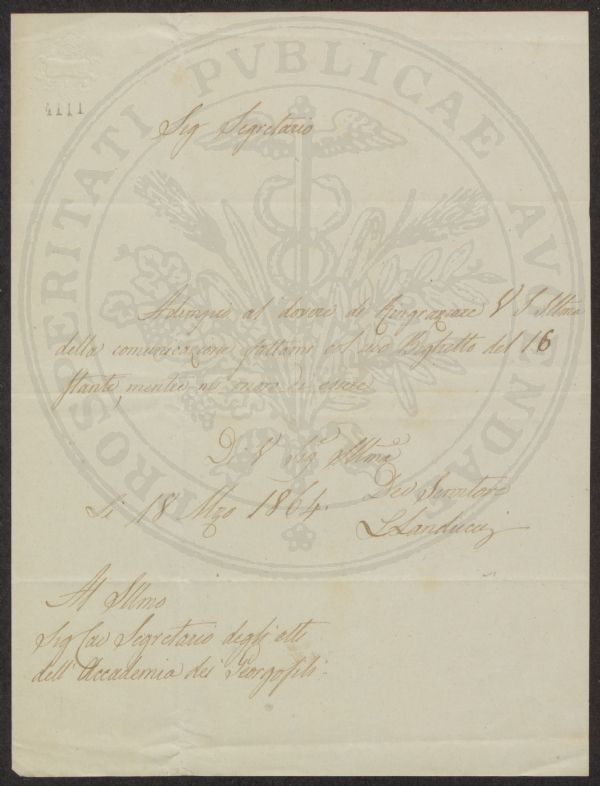 4111
PROSPERITATI PVBLICAE AVGENDAE
Sig Segretario
Adempio al dovere di Ringraziare V S Illma
della comunicazione fattami col suo Biglietto del 16
stante, mentre ho onore di essere
Di V Sigª Illmª
Li 18 Mzo 1864.
Dev Servitore
L Landucci
Al Illmo
Sig Cav Segretario degli atti
dell'Accademia dei Georgofili.